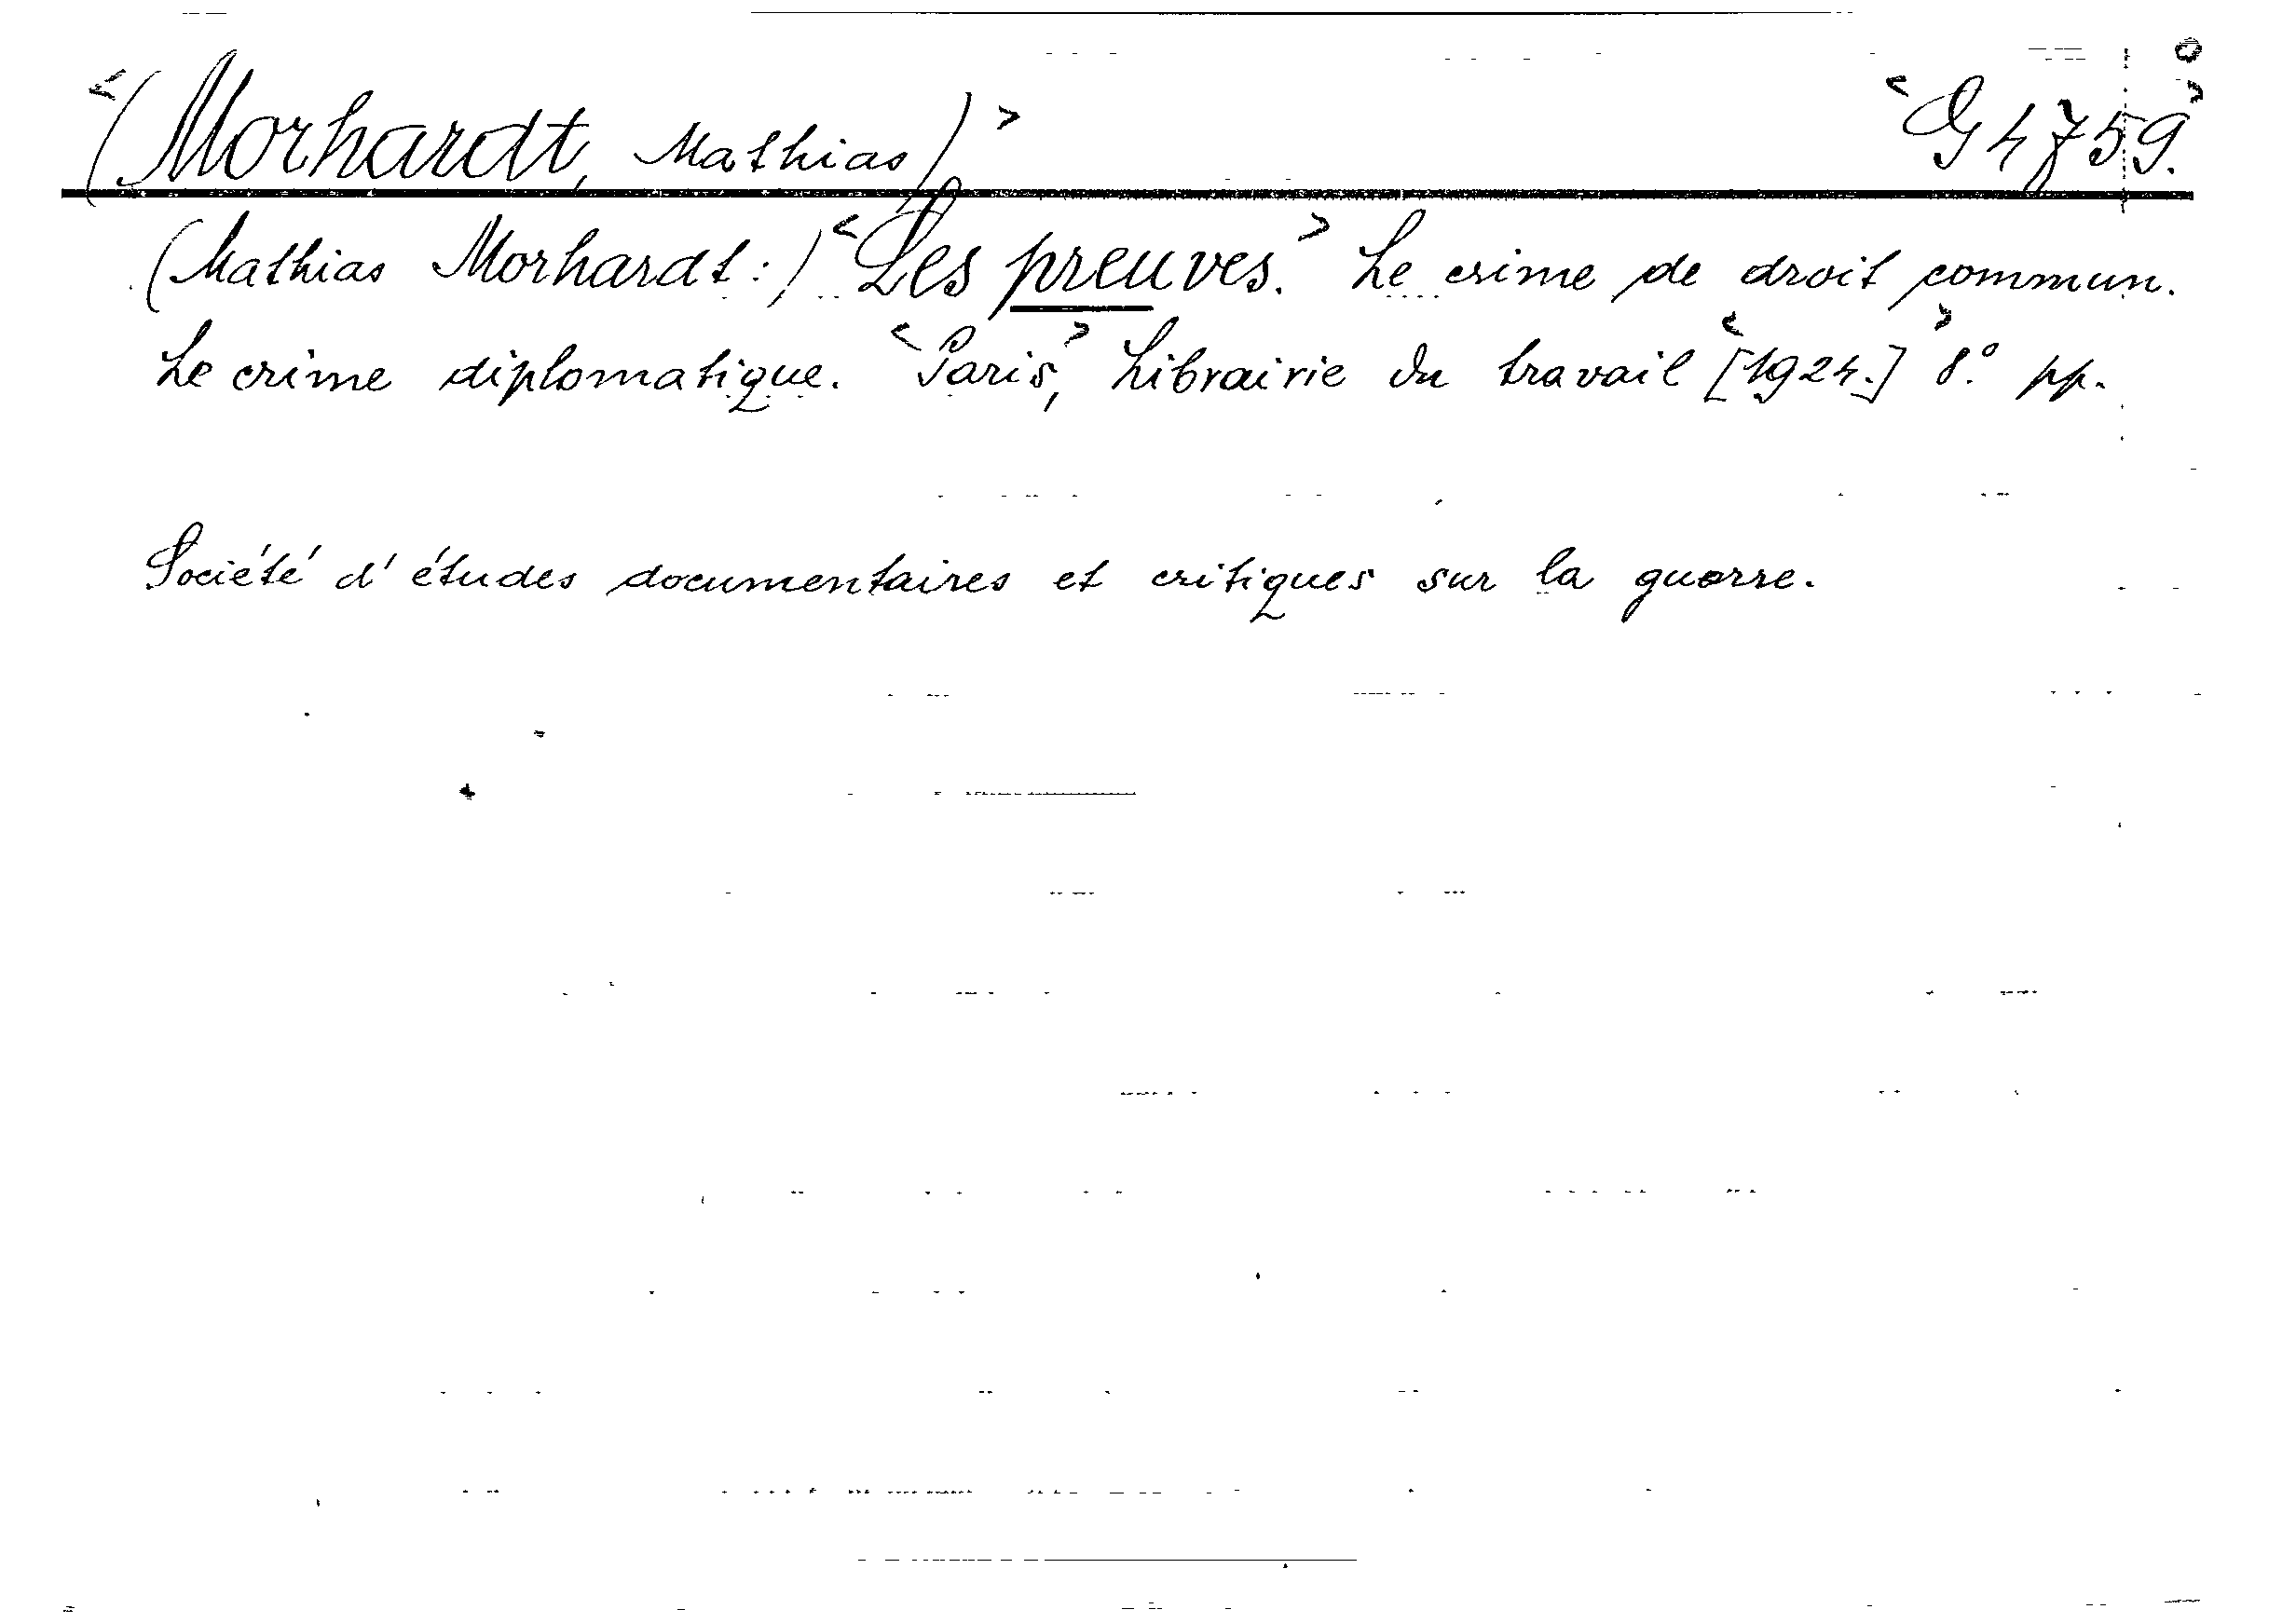 <(Morhardt, Mathias)> <G 4759.>
(Mathias Morhardt:) <Les preuves.> Le crime de droit commun.
Le crime diplomatique. <Paris,> Librairie du travail <[1924.]> 8.° pp.
Société d'études documentaires et critiques sur la guerre.